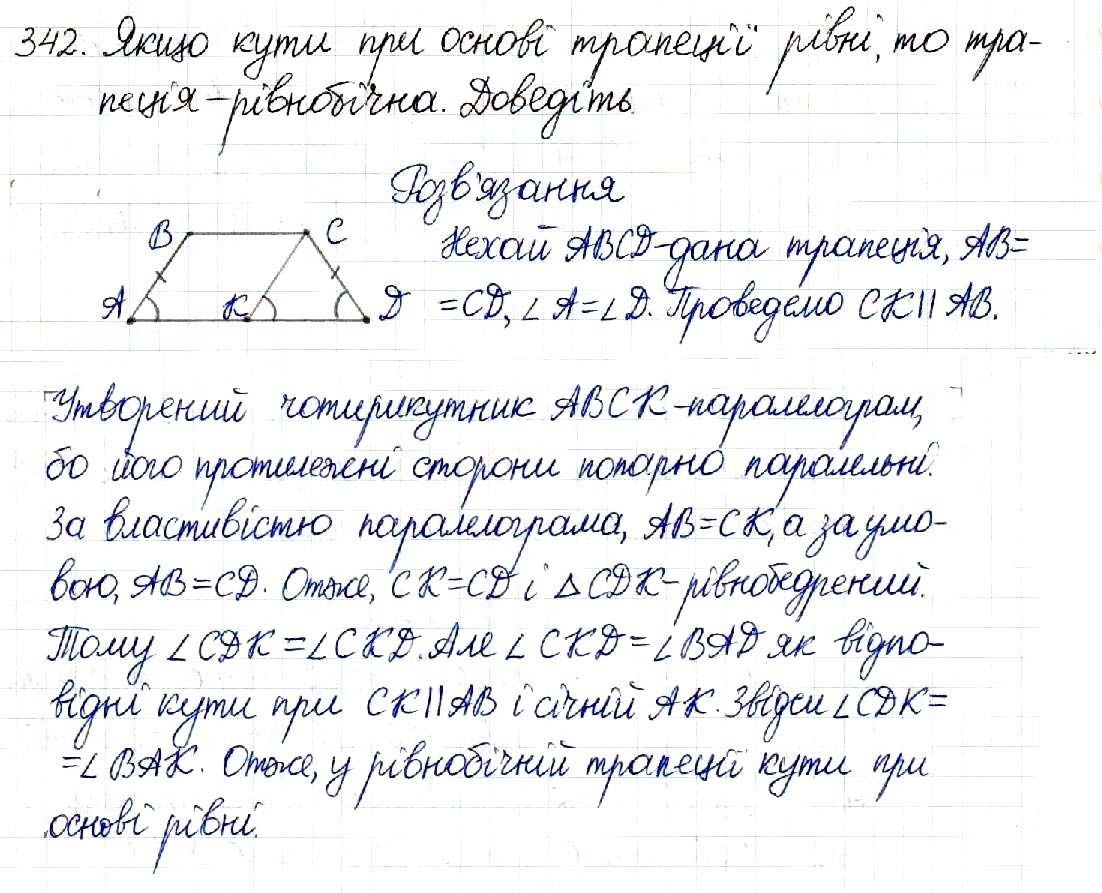 342. Якщо кути при основі трапеції рівні, то тра-
пеція – рівнобічна. Доведіть.
Розв'язання
B C
Нехай ABCD – дана трапеція, AB=
A K D
=CD, ∠A=∠D. Проведемо CK||AB.
Утворений чотирикутник ABCK – паралелограм,
бо його протилежні сторони попарно паралельні.
За властивістю паралелограма, AB=CK, а за умо-
вою, AB=CD. Отже, CK=CD і △CDK – рівнобедрений.
Тому ∠CDK=∠CKD. Але ∠CKD=∠BAD як відпо-
відні кути при CK||AB і січній AK. Звідси ∠CDK=
=∠BAK. Отже, у рівнобічній трапеції кути при
основі рівні.